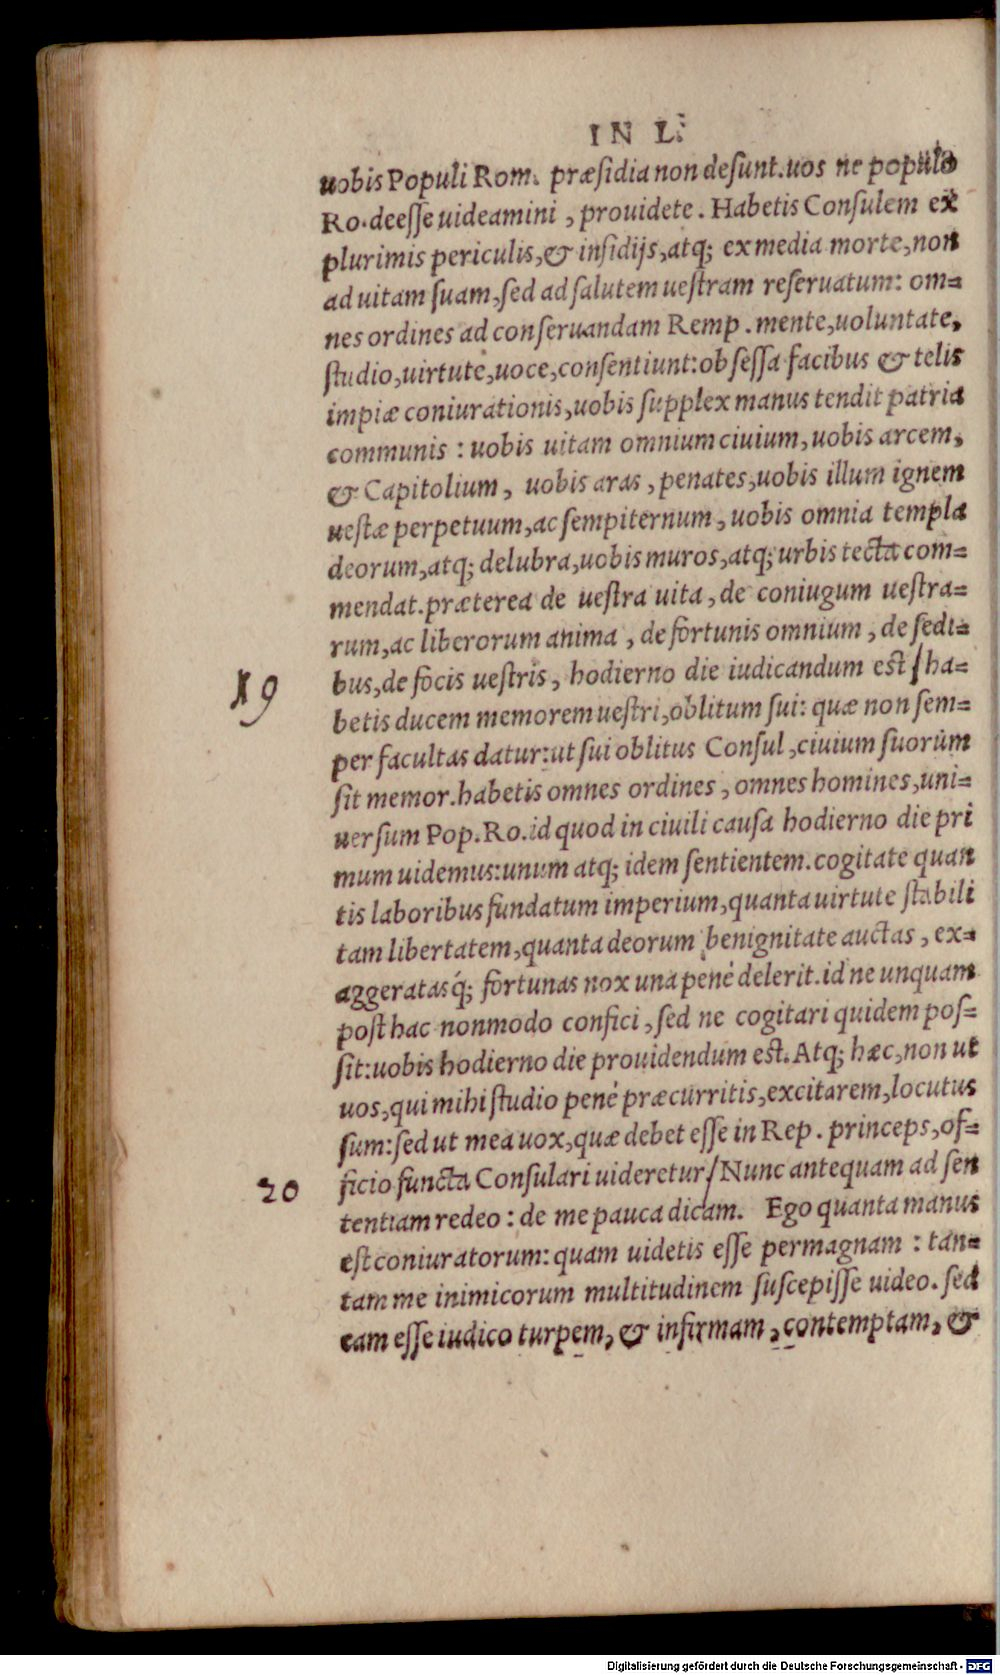 IN L.
uobis Populi Rom. præsidia non desunt. uos ne populo
Ro. deesse uideamini, prouidete. Habetis Consulem ex
plurimis periculis, & insidijs, atq; ex media morte, non
ad uitam suam, sed ad salutem uestram reseruatum: om=
nes ordines ad conseruandam Remp. mente, uoluntate,
studio, uirtute, uoce, consentiunt: obsessa facibus & telis
impiæ coniurationis, uobis supplex manus tendit patria
communis: uobis uitam omnium ciuium, uobis arcem,
& Capitolium, uobis aras, penates, uobis illum ignem
uestæ perpetuum, ac sempiternum, uobis omnia templa
deorum, atq; delubra, uobis muros, atq; urbis tecta com=
mendat. præterea de uestra uita, de coniugum uestra=
rum, ac liberorum anima, de fortunis omnium, de sedi=
19 bus, de focis uestris, hodierno die iudicandum est / ha=
betis ducem memorem uestri, oblitum sui: quæ non sem=
per facultas datur: ut sui oblitus Consul, ciuium suorum
sit memor. habetis omnes ordines, omnes homines, uni=
uersum Pop. Ro. id quod in ciuili causa hodierno die pri
mum uidemus: unum atq; idem sentientem. cogitate quan
tis laboribus fundatum imperium, quanta uirtute stabili
tam libertatem, quanta deorum benignitate auctas, ex=
aggeratasq́; fortunas nox una pené delerit. id ne unquam
post hac nonmodo confici, sed ne cogitari quidem pos=
sit: uobis hodierno die prouidendum est. Atq; hæc, non ut
uos, qui mihi studio pené præcurritis, excitarem, locutus
sum: sed ut mea uox, quæ debet esse in Rep. princeps, of=
20 ficio functa Consulari uideretur / Nunc antequam ad sen
tentiam redeo: de me pauca dicam. Ego quanta manus
est coniuratorum: quam uidetis esse permagnam: tan=
tam me inimicorum multitudinem suscepisse uideo. sed
eam esse iudico turpem, & infirmam, contemptam, &
Digitalisierung gefördert durch die Deutsche Forschungsgemeinschaft - DFG